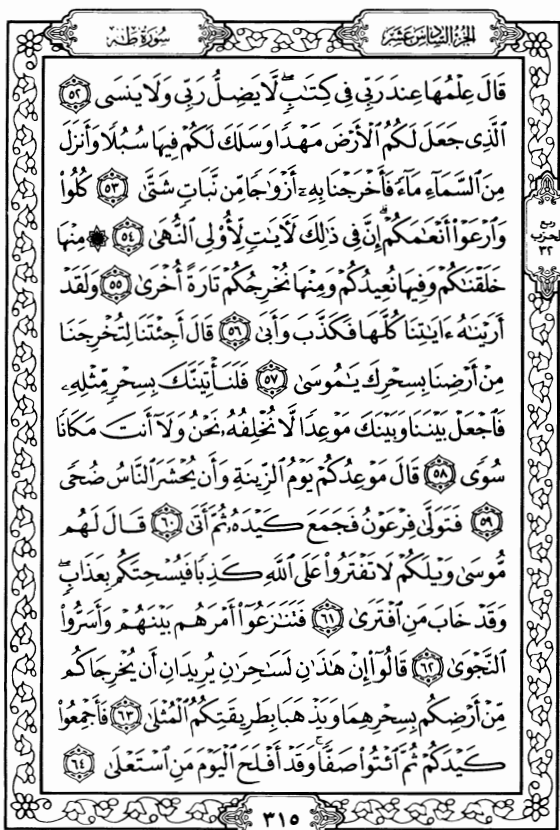 الجزء السادس عشر
سورة طه
قَالَ عِلْمُهَا عِندَ رَبِّي فِي كِتَٰبٍۖ لَّا يَضِلُّ رَبِّي وَلَا يَنسَى ٥٢
ٱلَّذِي جَعَلَ لَكُمُ ٱلْأَرْضَ مَهْدًا وَسَلَكَ لَكُمْ فِيهَا سُبُلًا وَأَنزَلَ
مِنَ ٱلسَّمَآءِ مَآءً فَأَخْرَجْنَا بِهِۦٓ أَزْوَٰجًا مِّن نَّبَاتٍ شَتَّىٰ ٥٣ كُلُوا۟
وَٱرْعَوْا۟ أَنْعَٰمَكُمْۗ إِنَّ فِي ذَٰلِكَ لَءَايَٰتٍ لِّأُو۟لِي ٱلنُّهَىٰ ٥٤ ۞ مِنْهَا
ربع
الحزب
٣٢
خَلَقْنَٰكُمْ وَفِيهَا نُعِيدُكُمْ وَمِنْهَا نُخْرِجُكُمْ تَارَةً أُخْرَىٰ ٥٥ وَلَقَدْ
أَرَيْنَٰهُ ءَايَٰتِنَا كُلَّهَا فَكَذَّبَ وَأَبَىٰ ٥٦ قَالَ أَجِئْتَنَا لِتُخْرِجَنَا
مِنْ أَرْضِنَا بِسِحْرِكَ يَٰمُوسَىٰ ٥٧ فَلَنَأْتِيَنَّكَ بِسِحْرٍ مِّثْلِهِۦ
فَٱجْعَلْ بَيْنَنَا وَبَيْنَكَ مَوْعِدًا لَّا نُخْلِفُهُۥ نَحْنُ وَلَآ أَنتَ مَكَانًا
سُوًى ٥٨ قَالَ مَوْعِدُكُمْ يَوْمُ ٱلزِّينَةِ وَأَن يُحْشَرَ ٱلنَّاسُ ضُحًى
٥٩ فَتَوَلَّىٰ فِرْعَوْنُ فَجَمَعَ كَيْدَهُۥ ثُمَّ أَتَىٰ ٦٠ قَالَ لَهُم
مُّوسَىٰ وَيْلَكُمْ لَا تَفْتَرُوا۟ عَلَى ٱللَّهِ كَذِبًا فَيُسْحِتَكُم بِعَذَابٍۖ
وَقَدْ خَابَ مَنِ ٱفْتَرَىٰ ٦١ فَتَنَٰزَعُوٓا۟ أَمْرَهُم بَيْنَهُمْ وَأَسَرُّوا۟
ٱلنَّجْوَىٰ ٦٢ قَالُوٓا۟ إِنْ هَٰذَٰنِ لَسَٰحِرَٰنِ يُرِيدَانِ أَن يُخْرِجَاكُم
مِّنْ أَرْضِكُم بِسِحْرِهِمَا وَيَذْهَبَا بِطَرِيقَتِكُمُ ٱلْمُثْلَىٰ ٦٣ فَأَجْمِعُوا۟
كَيْدَكُمْ ثُمَّ ٱئْتُوا۟ صَفًّاۚ وَقَدْ أَفْلَحَ ٱلْيَوْمَ مَنِ ٱسْتَعْلَىٰ ٦٤
٣١٥